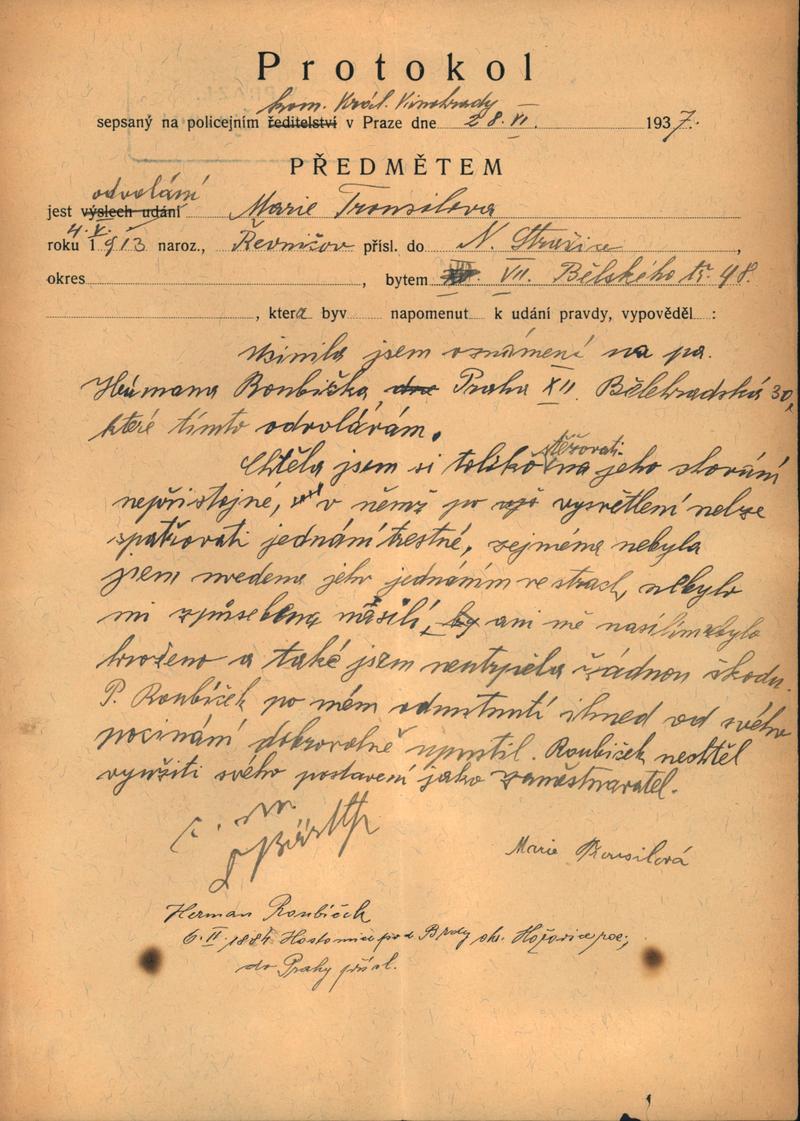 Protokol
kom. Král. Vinohrady
sepsaný na policejním ředitelství v Praze dne 28. VI. 1937.
PŘEDMĚTEM
odvolání
jest výslech udání Marie Trousilova
4. V.
roku 1913 naroz., Řevničov přísl. do N. Strašice,
okres , bytem VII. Bělského tř. 48.
, ktera byv napomenut k udání pravdy, vypověděl :
Učinila jsem oznámení na pa.
Heřmana Roubíčka, Praha XII Bělehradská 30,
které tímto odvolávám.
stěžovati
Chtěla jsem si toliko na jeho chování
nepřístojné, v němž po vysvětlení nelze
spatřovati jednání trestné, zejména nebyla
jsem uvedena jeho jednáním ve strach, nebylo
mi způsobeno násilí, ani mě násilím nebylo
hroženo a také jsem neutrpěla žádnou škodu.
P. Roubíček po mém odmítnutí ihned od svého
počínání dobrovolně upustil. Roubíček nechtěl
využíti svého postavení jako zaměstnavatel.
Marie Trousilová
Herman Roubíček
6. II. 1884 Hostomice pod Brdy okr. Hořovice
do Prahy přísl.